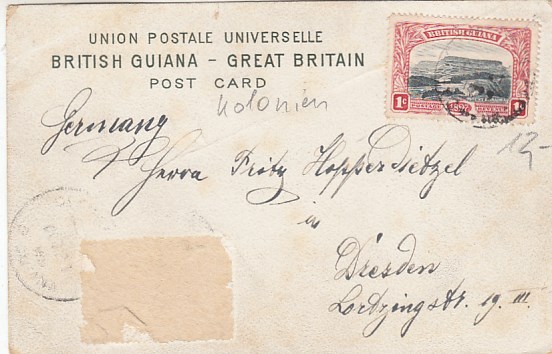 UNION POSTALE UNIVERSELLE
BRITISH GUIANA - GREAT BRITAIN
POST CARD
BRITISH GUIANA
1c POSTAGE 1897 REVENUE 1c
Kolonien
Germany
12,-
Herrn Fritz Hopperdietzel
in
Dresden
Lortzingstr. 19. III.